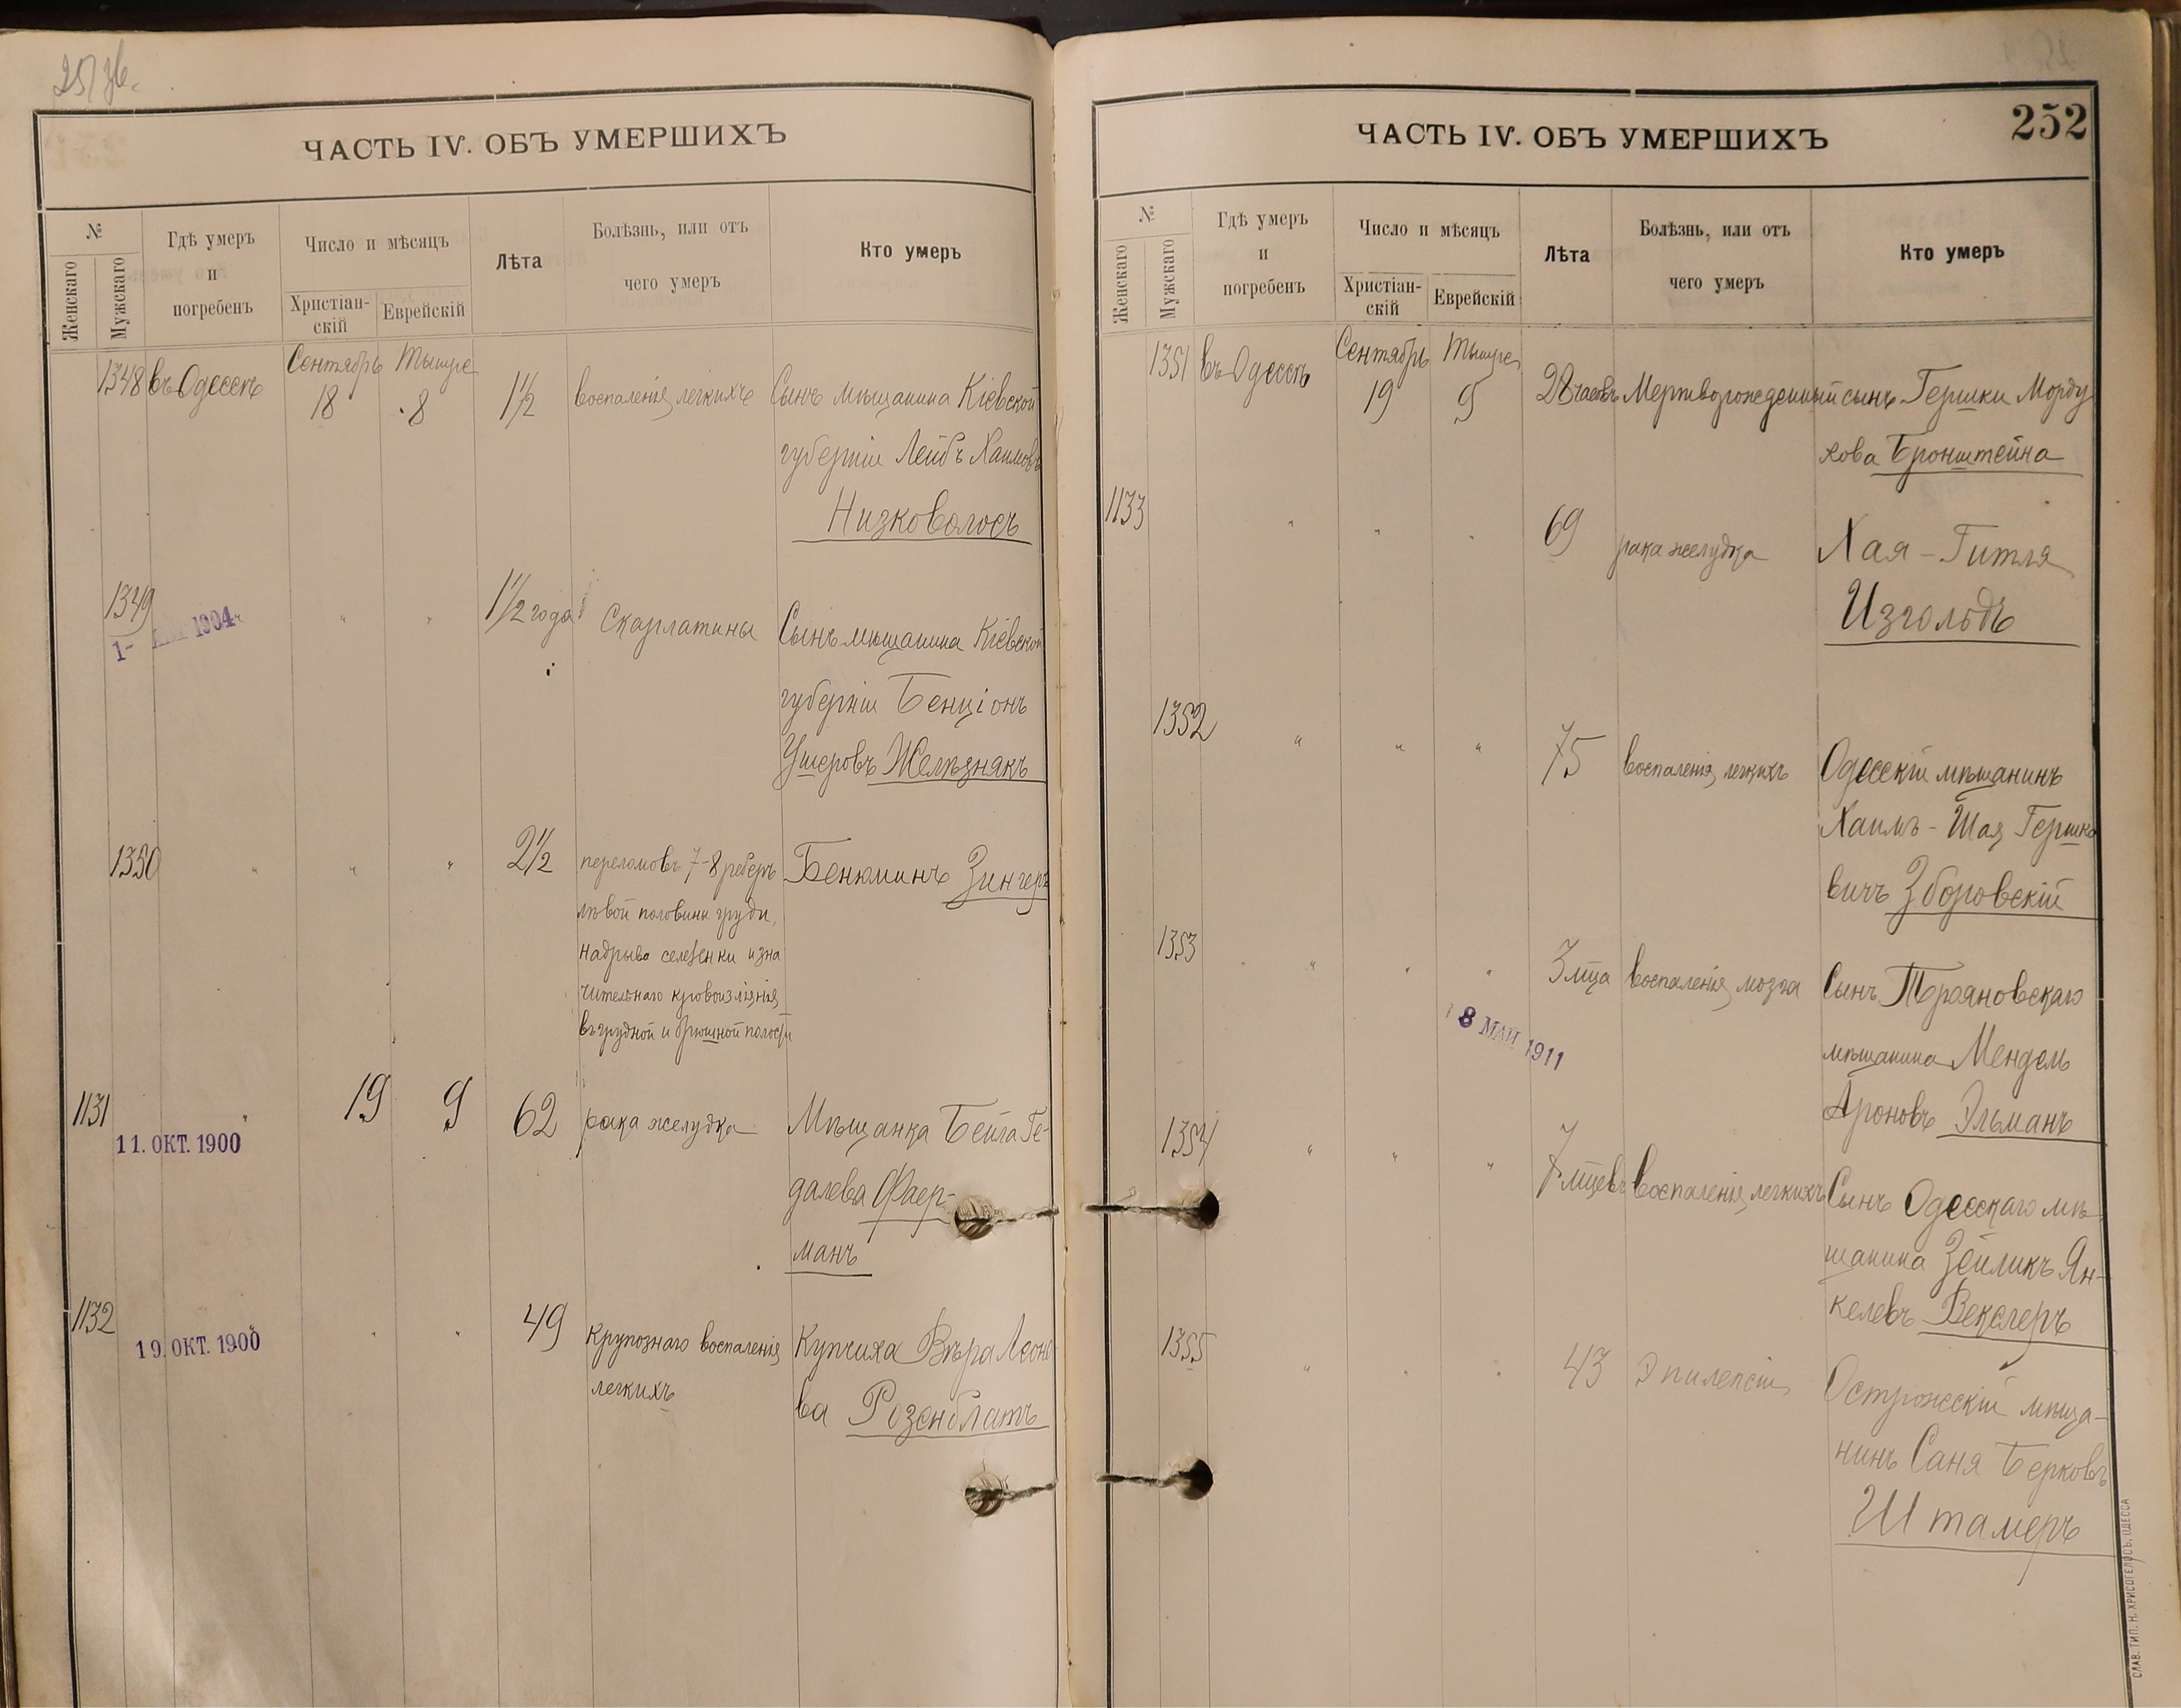 ЧАСТЬ IV. ОБЪ УМЕРШИХЪ
№
Женскаго
Мужскаго
Гдѣ умеръ
и
погребенъ
Число и мѣсяцъ
Христіан-
скій
Еврейскій
Лѣта
Болѣзнь, или отъ
чего умеръ
Кто умеръ
1348 въ Одессѣ Сентябрь 18 Тышре 8 1½ воспаленія легкихъ Сынъ мѣщанина Кіевской
губерніи Лейбъ Хаимовъ
Низковолосъ
1349 " " 1½ года Скарлатины Сынъ мѣщанина Кіевской
1904
губерніи Бенціонъ
Ушеровъ Желѣзнякъ
1350 " " " 2½ переломовъ 7-8 реберъ Бенюминъ Зингеръ
лѣвой половины груди,
надрыва селезенки и зна
чительнаго кровоизліянія
въ грудной и брюшной полости
1131 " 19 9 62 рака желудка Мѣщанка Бейла Ге-
11. ОКТ. 1900
далева Фаер-
манъ
1132 " " " 49 крупознаго воспаленія Купчиха Вѣра Леоно
19. ОКТ. 1900
легкихъ ва Розенблатъ
ЧАСТЬ IV. ОБЪ УМЕРШИХЪ
252
№
Женскаго
Мужскаго
Гдѣ умеръ
и
погребенъ
Число и мѣсяцъ
Христіан-
скій
Еврейскій
Лѣта
Болѣзнь, или отъ
чего умеръ
Кто умеръ
1351 въ Одессѣ Сентябрь 19 Тышре 9 28 часовъ Мертворожденный сынъ Гершки Морду
хова Бронштейна
1133 " " " 69 рака желудка Хая-Гитля
Изгольдъ
1352 " " " 75 воспаленія легкихъ Одесскій мѣщанинъ
Хаимъ-Шая Гершко
вичъ Зборовскій
1353 " " " 3 мца воспаленія мозга Сынъ Трояновскаго
18 МАЙ 1911
мѣщанина Мендель
Ароновъ Эльманъ
1354 " " " 7 мцевъ воспаленія легкихъ Сынъ Одесскаго мѣ
щанина Зейликъ Ян-
келевъ Векслеръ
1355 " " " 43 Эпилепсіи Острожскій мѣща-
нинъ Саня Берковъ
Штамеръ
СЛАВ. ТИП. Н. ХРИСОГЕЛОСЪ, ОДЕССА